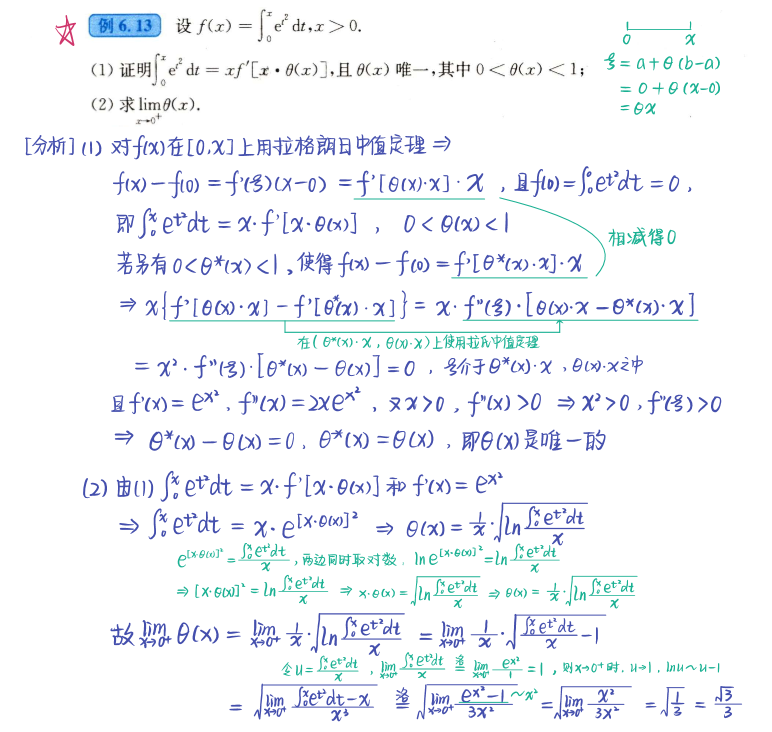 ☆ 例 6.13 设 f(x) = ∫₀ˣ e^{t²} dt, x > 0.
0 x
(1) 证明∫₀ˣ e^{t²} dt = xf′[x·θ(x)],且 θ(x) 唯一,其中 0 < θ(x) < 1;
(2) 求 lim_{x→0⁺} θ(x).
ξ = a + θ(b-a)
= 0 + θ(x-0)
= θx
[分析] (1) 对f(x)在[0,x]上用拉格朗日中值定理 ⇒
f(x) - f(0) = f'(ξ)(x-0) = f'[θ(x)·x]·x , 且f(0) = ∫₀⁰ e^{t²}dt = 0 ,
即 ∫₀ˣ e^{t²}dt = x·f'[x·θ(x)] , 0 < θ(x) < 1
相减得0
若另有 0 < θ*(x) < 1 , 使得 f(x) - f(0) = f'[θ*(x)·x]·x
⇒ x{f'[θ(x)·x] - f'[θ*(x)·x]} = x·f''(ξ)·[θ(x)·x - θ*(x)·x]
在(θ*(x)·x , θ(x)·x)上使用拉氏中值定理
= x²·f''(ξ)·[θ*(x) - θ(x)] = 0 , ξ介于θ*(x)·x , θ(x)·x之中
且 f'(x) = e^{x²} , f''(x) = 2xe^{x²} , 又 x>0 , f''(x) > 0 ⇒ x² > 0 , f''(ξ) > 0
⇒ θ*(x) - θ(x) = 0 , θ*(x) = θ(x) , 即θ(x)是唯一的
(2) 由(1) ∫₀ˣ e^{t²}dt = x·f'[x·θ(x)] 和 f'(x) = e^{x²}
⇒ ∫₀ˣ e^{t²}dt = x·e^{[x·θ(x)]²} ⇒ θ(x) = 1/x·√(ln (∫₀ˣ e^{t²}dt)/x)
e^{[x·θ(x)]²} = (∫₀ˣ e^{t²}dt)/x , 两边同时取对数 , ln e^{[x·θ(x)]²} = ln (∫₀ˣ e^{t²}dt)/x
⇒ [x·θ(x)]² = ln (∫₀ˣ e^{t²}dt)/x ⇒ x·θ(x) = √(ln (∫₀ˣ e^{t²}dt)/x) ⇒ θ(x) = 1/x·√(ln (∫₀ˣ e^{t²}dt)/x)
故 lim_{x→0⁺} θ(x) = lim_{x→0⁺} 1/x·√(ln (∫₀ˣ e^{t²}dt)/x) = lim_{x→0⁺} 1/x·√((∫₀ˣ e^{t²}dt)/x - 1)
令 u = (∫₀ˣ e^{t²}dt)/x , lim_{x→0⁺} (∫₀ˣ e^{t²}dt)/x 洛= lim_{x→0⁺} e^{x²}/1 = 1 , 则x→0⁺时, u→1 , ln u ~ u-1
= √(lim_{x→0⁺} (∫₀ˣ e^{t²}dt - x)/x³) 洛= √(lim_{x→0⁺} (e^{x²} - 1)/3x²) ~x² = √(lim_{x→0⁺} x²/3x²) = √(1/3) = √3/3